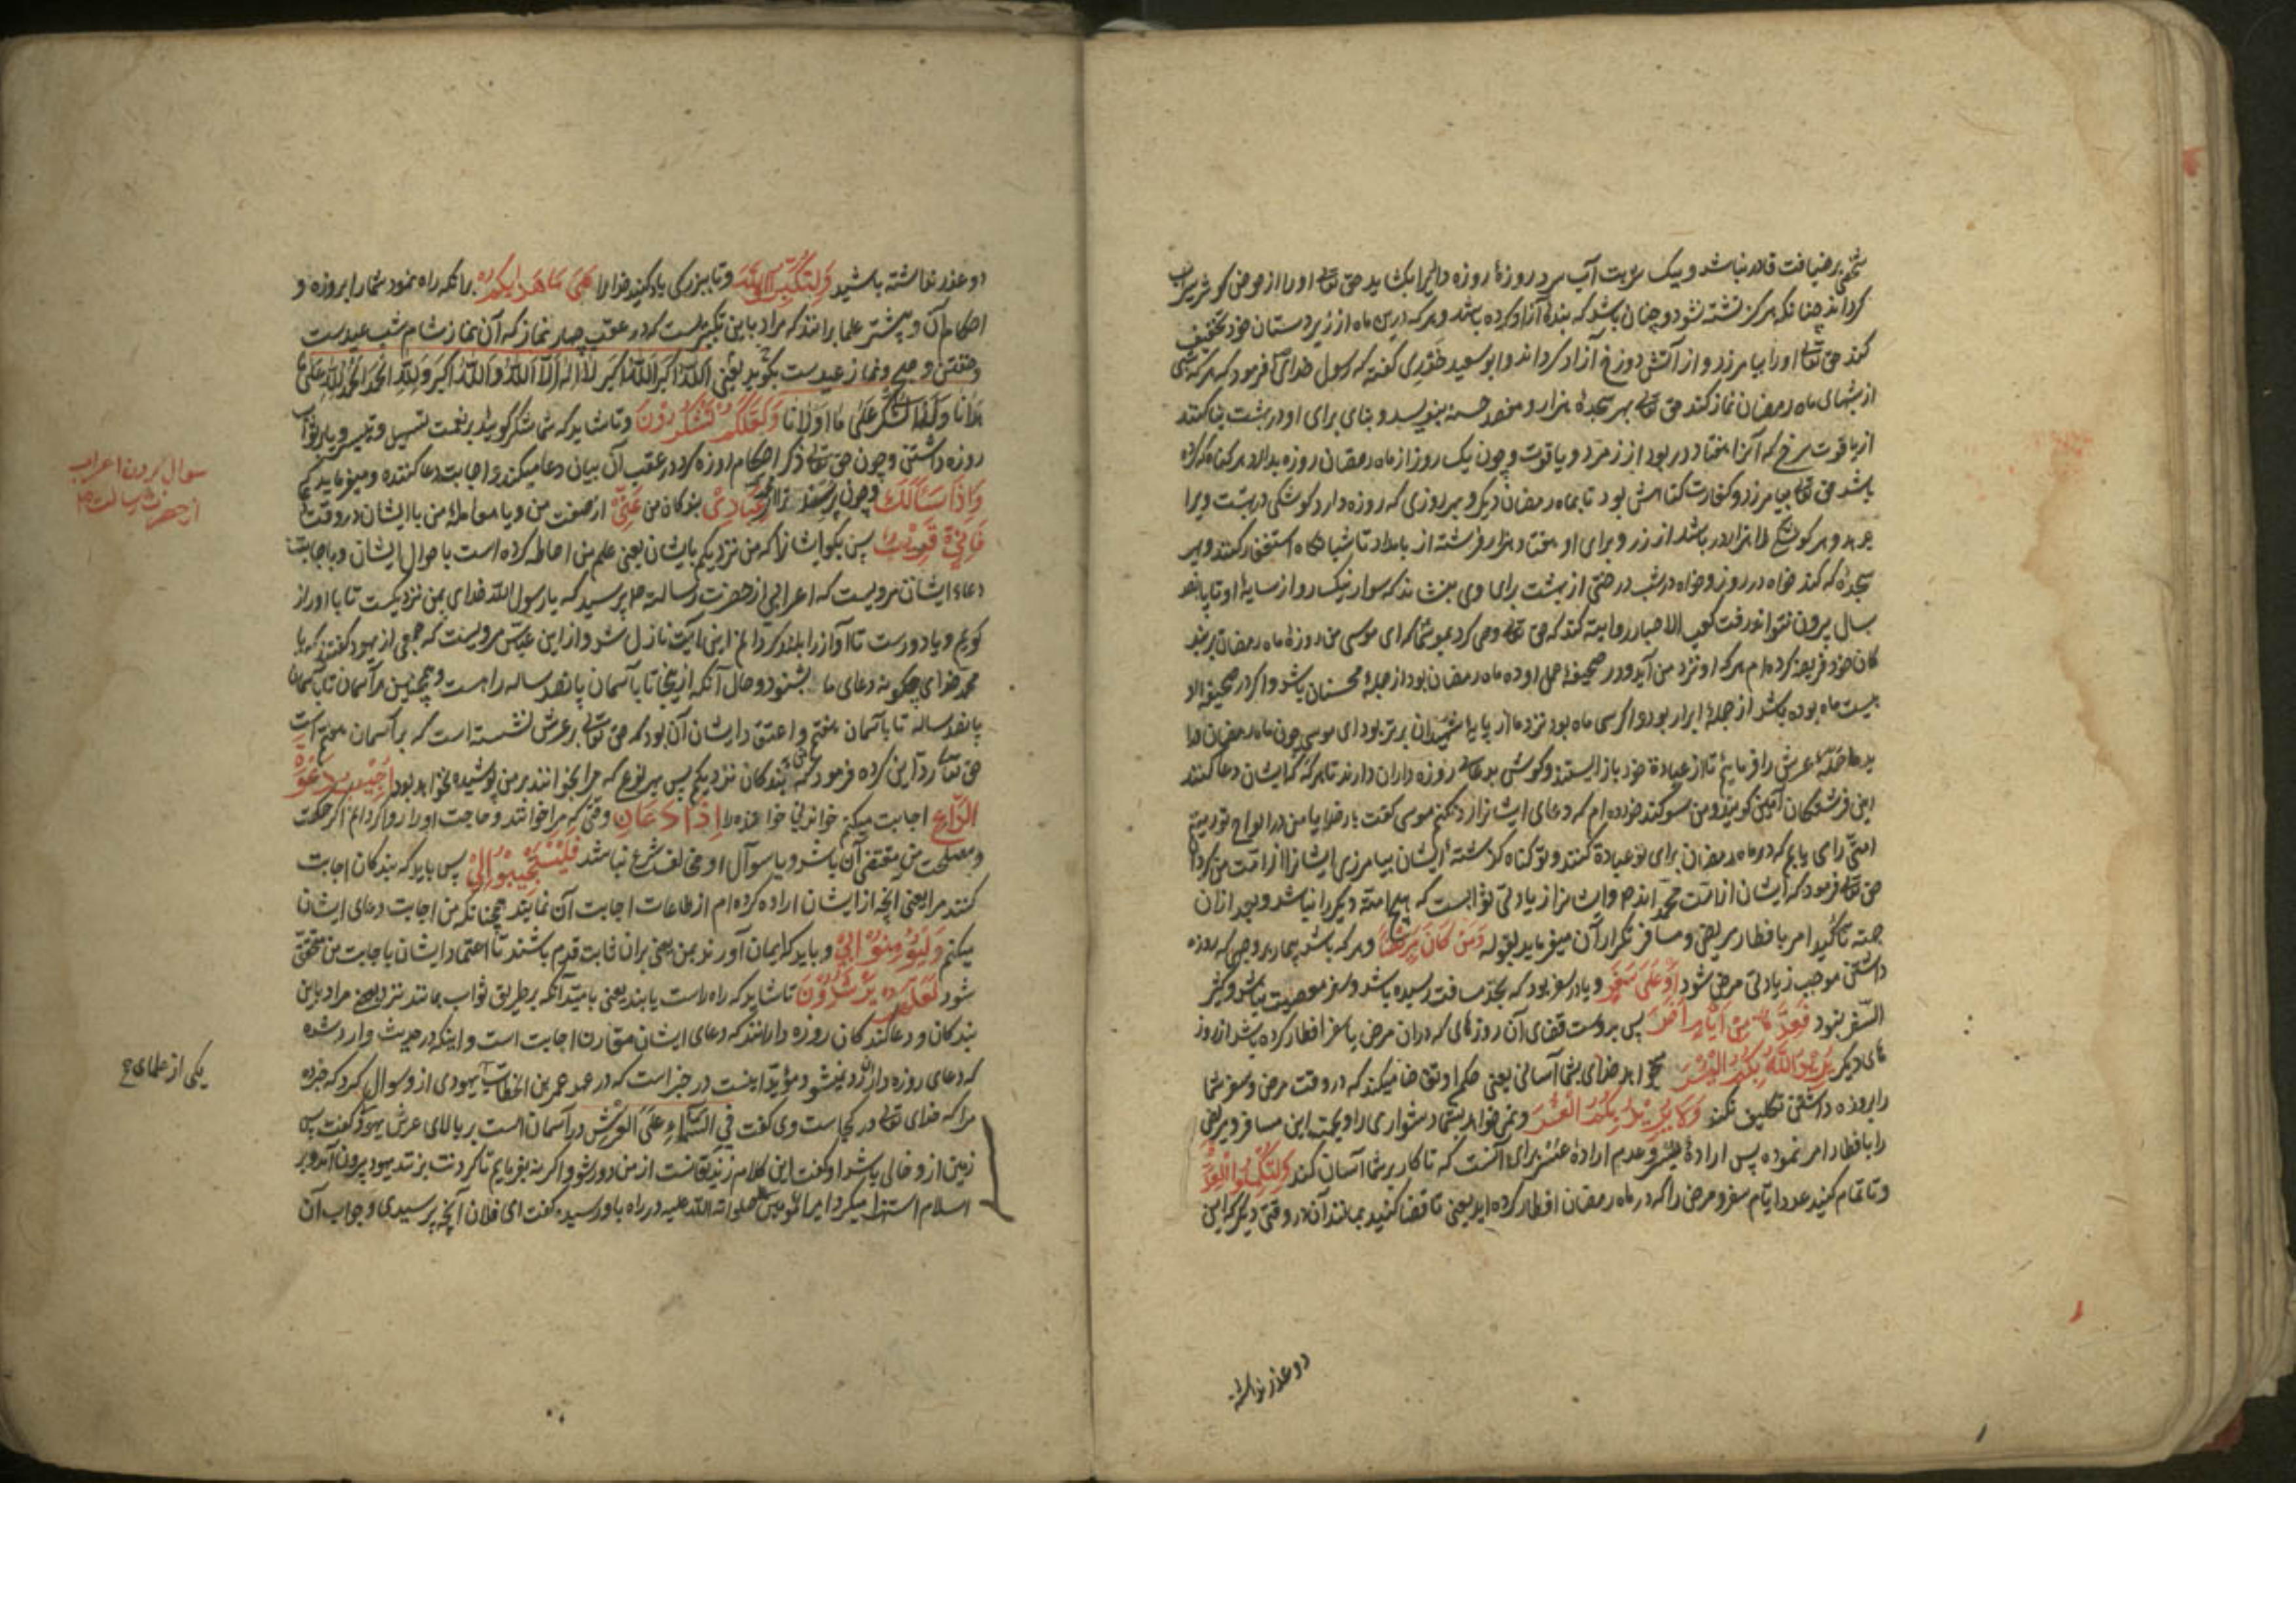 شخصی بر ضیافت قادر نباشد و بیک شربت آب سرد روزهٔ روزه داری را بکشاید حق تعالی او را از حوض کوثر شربت
کرداند چنانکه هرکز تشنه نشود و چنان باشد که بندهٔ آزاد کرده باشد و هر که درین ماه از زیردستان خود تخفیف
کند حق تعالی او را بیامرزد و از آتش دوزخ آزاد کرداند و ابو سعید خدری کفته که رسول خدای فرمود که هر که شبی
از شبهای ماه رمضان نماز کند حق تعالی بهر سجدهٔ هزار و هفصد حسنه بنویسد و بنای برای او در بهشت بنا کنند
از یاقوت سرخ که آنرا هفتاد در بود از زمرد و یاقوت و چون یک روز از ماه رمضان روزه بدارد هر کناه که کرده
باشد حق تعالی بیامرزد و کفارت کناهش بود تا بماه رمضان دیکر و بهر روزی که روزه دارد کوشکی در بهشت ویرا
بدهد و هر کوشکی را هزار در باشد از زر و برای او هفتاد هزار فرشته از بامداد تا شبانکاه استغفار کنند و بهر
سجدهٔ که کند خواه در روز و خواه در شب درختی از بهشت برای وی بنشانند که سوار نیک رو از سایهٔ او تا پانصد
سال بیرون نتواند رفت کعب الاحبار روایت کند که حق تعالی وحی کرد بموسی که ای موسی من روزهٔ ماه رمضان بر بند
کان خود فریضه کرده‌ام هر که او نزد من آید و در صحیفهٔ عمل او ده ماه رمضان بود از جملهٔ محسنان باشد و اکر در صحیفهٔ او
بیست ماه بوده باشد از جملهٔ ابرار بود و اکر سی ماه بود نزد ما از پایهٔ شهیدان برتر بود ای موسی چون ماه رمضان در
حملهٔ عرش را فرمایم تا از عبادة خود باز ایستند و کوش بدعای روزه داران دارند تا هر که کایشان دعا کنند
این فرشتکان آمین کویند و من سوکند خورده‌ام که دعای ایشانرا رد نکنم موسی کفت بار خدایا من در الواح تورات
امتی را می یابم که در ماه رمضان برای تو عبادة کنند و تو کناه کذشتهٔ ایشان بیامرزی ایشانرا از امت من کردان
حق تعالی فرمود که ایشان از امت محمد اند و ایشانرا از یادتی ثوابیست که هیچ امتهٔ دیکر را نباشد و بعد از آن
جهته تاکید امر بافطار مریض و مسافر تکرار آن میفرماید بقوله وَمَنْ كَانَ مَرِيضًا و هر که باشد بیمار بر وجهی که روزه
داشتن موجب زیادتی مرض شود أَوْ عَلَى سَفَرٍ و یا در سفر بود که بحد مسافت رسیده باشد و سفر معصیت نباشد و کثیر
السفر نبود فَعِدَّةٌ مِنْ أَيَّامٍ أُخَرَ پس بروست قضای آن روزهای که در آن مرض یا سفر افطار کرده باشد از روز
های دیکر يُرِيدُ اللَّهُ بِكُمُ الْيُسْرَ میخواهد خدای بشما آسانی یعنی حکم او تقاضا میکند که در وقت مرض و سفر شما
را بروزه داشتن تکلیف نکند وَلَا يُرِيدُ بِكُمُ الْعُسْرَ و نمی خواهد بشما دشواری را و بجهت این مسافر و مریض
را بافطار امر نموده پس ارادهٔ یسر و عدم ارادهٔ عسر برای آنست که تا کار بر شما آسان کند وَلِتُكْمِلُوا الْعِدَّةَ
و تا تمام کنید عدد ایام سفر و مرض را که در ماه رمضان افطار کرده اید یعنی تا قضا کنید بمانند آن در وقتی دیکر که این
دو عذر نداشته
دو عذر نداشته باشید وَلِتُكَبِّرُوا اللَّهَ و تا ببزرکی یاد کنید خدا را عَلَى مَا هَدَاكُمْ برانکه راه نمود شما را بروزه و
احکام آن و بیشتر علما برانند که مراد باین تکبیریست که در عقب چهار نماز که آن نماز شام شب عیدست
و خفتن و صبح و نماز عیدست بکویید یعنی اللّه اکبر اللّه اکبر لا اله الا اللّه و اللّه اکبر و للّه الحمد الحمد للّه علی ما
هدانا و له الشکر علی ما اولانا وَلَعَلَّكُمْ تَشْكُرُونَ و تا شاید که شما شکر کویید بر نعمت تسهیل و تیسیر و یا بر ثواب
روزه داشتن و چون حق تعالی ذکر احکام روزه کرد در عقب آن بیان دعا میکند و اجابت دعا کننده و میفرماید که
وَإِذَا سَأَلَكَ و چون پرسند ترا عِبَادِي بندکان من عَنِّي از صفت من و یا معاملهٔ من با ایشان در وقت
فَإِنِّي قَرِيبٌ پس بکو ایشانرا که من نزدیکم بایشان یعنی علم من احاطه کرده است باحوال ایشان و باجابت
دعاء ایشان مرویست که اعرابی از حضرت رسالت پرسید که یا رسول اللّه خدای بمن نزدیکست تا با او راز
کویم و یا دورست تا آواز را بلند کردانم این آیت نازل شد و از ابن عباس مرویست که جمعی از یهود کفتند که یا
محمد خدای چکونه دعای ما بشنود و حال آنکه از اینجا تا بآسمان پانصد ساله راهست و همچنین هر آسمان تا بآسمان
پانصد ساله تا بآسمان هفتم و اعتقاد ایشان آن بود که حق تعالی بر عرش نشسته است که بر آسمان هفتم است
حق تعالی رد این کرده فرمود که من ببندکان نزدیکم پس بهر نوع که مرا بخوانند بر من پوشیده نخواهد بود أُجِيبُ دَعْوَةَ
الدَّاعِ اجابت میکنم خواندن خواننده را إِذَا دَعَانِ وقتی که مرا خوانند و حاجت او را روا کردانم اکر حکمت
و مصلحت من مقتضی آن باشد و یا سوآل او مخالف شرع نباشد فَلْيَسْتَجِيبُوا لِي پس باید که بندکان اجابت
کنند مرا یعنی آنچه از ایشان اراده کرده‌ام از طاعات اجابت آن نمایند همچنانکه من اجابت دعای ایشان
میکنم وَلْيُؤْمِنُوا بِي و باید که ایمان آورند بمن یعنی بران ثابت قدم باشند تا اعتماد ایشان باجابت من متحقق
شود لَعَلَّهُمْ يَرْشُدُونَ تا شاید که راه راست یابند یعنی بامید آنکه بر طریق ثواب بمانند نزد بعضی مراد باین
بندکان و دعا کنندکان روزه دارانند که دعای ایشان مقارن اجابت است و اینکه در حدیث وارد شده
که دعای روزه دار رد نمیشود مؤید اینست در خبر است که در عهد عمر بن الخطاب یهودی ازو سوال کرد که خبر ده
مرا که خدای تعالی در کجاست وی کفت فی السماء علی العرش در آسمان است بر بالای عرش یهود کفت پس
زمین ازو خالی باشد او کفت این کلام زندیقانست از من دور شو و اکر نه بفرمایم تا کردنت بزنند یهود بیرون آمد و بر
اسلام استهزا میکرد امیر المومنین صلوات اللّه علیه در راه باو رسید کفت ای فلان آنچه پرسیدی و جواب آن
سوال کردن اعراب
از حضرت رسالت
یکی از علمای